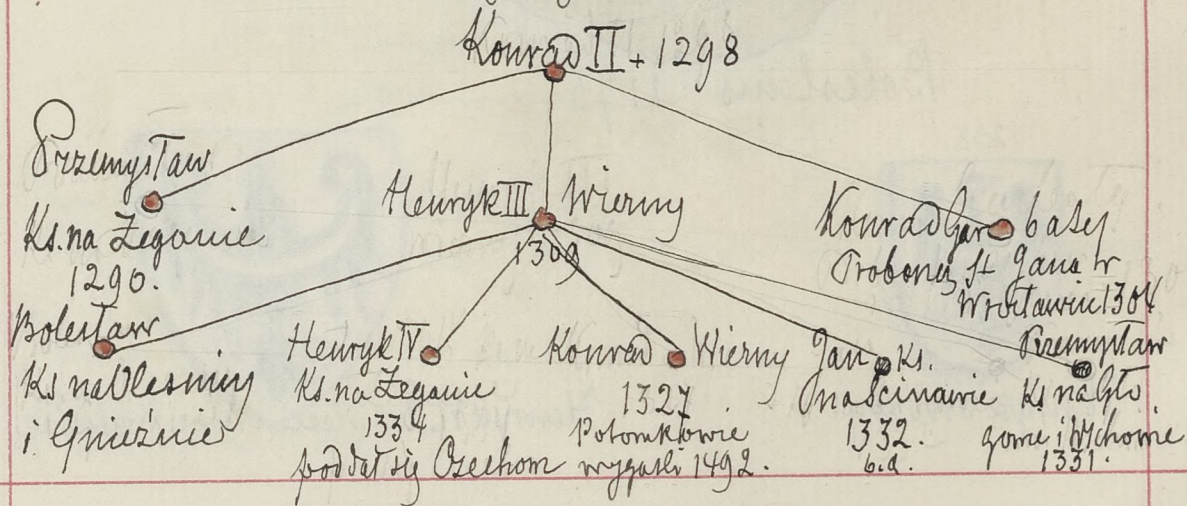 Konrad II + 1298
Przemysław
Ks. na Żeganie
1290.
Henryk III Wierny
1309
Konrad Garbaty
Proboszcz St Jana w
Wrocławiu 1304
Bolesław
Ks na Oleśnicy
i Gnieźnie
Henryk IV
Ks. na Żeganie
1334
poddał się Czechom
Konrad Wierny
1327
Potomkowie
wygaśli 1492.
Jan Ks.
na Ścinawie
1332.
b.d.
Przemysław
Ks na Gło
gowie i Wschowie
1331.